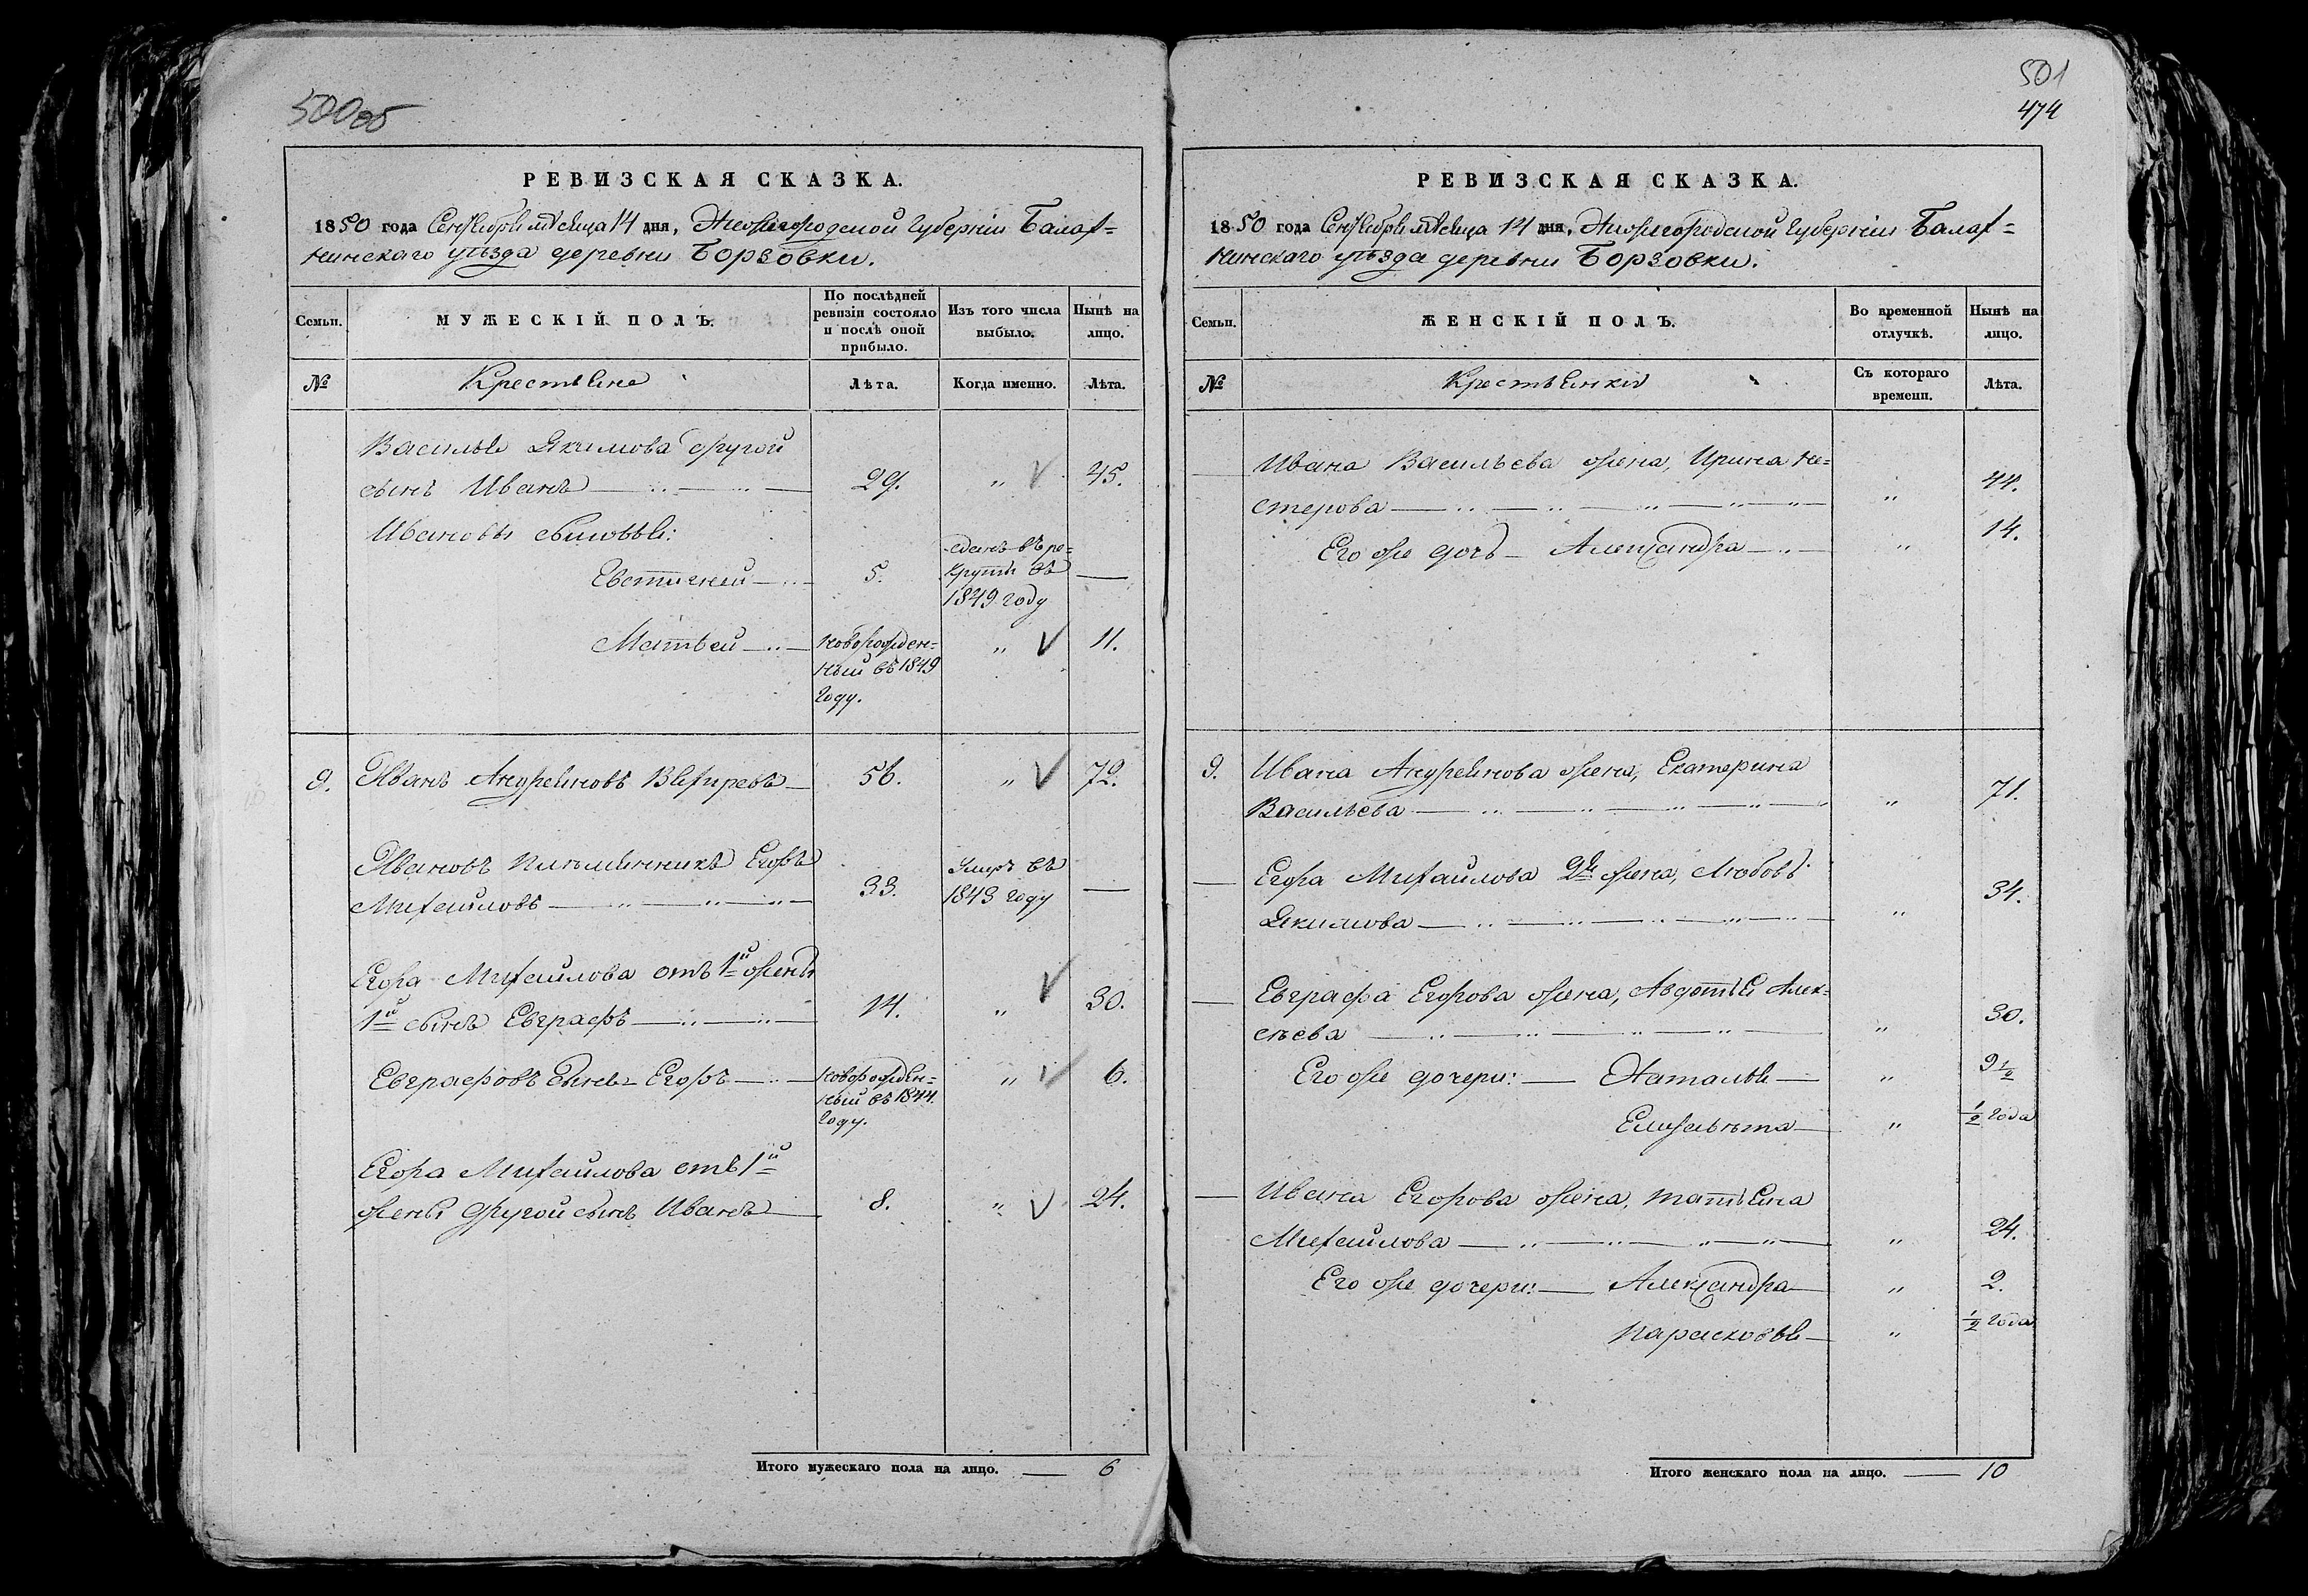 500об
РЕВИЗСКАЯ СКАЗКА.
1850 года Сентября мѣсяца 14 дня, Нижегородской Губерніи Балах=
нинскаго уѣзда деревни Борзовки.
Семьи.
МУЖЕСКІЙ ПОЛЪ.
По послѣдней
ревизіи состояло
и послѣ оной
прибыло.
Изъ того числа
выбыло.
Нынѣ на
лицо.
№
Крестьяне
Лѣта.
Когда именно.
Лѣта.
Василья Якимова другой
сынъ Иванъ 29. " 45.
Ивановы сыновья:
Евстигней 5. сданъ въ ре=
крупы въ
1849 году
Матвей новорожден=
ный въ 1849
году. " 11.
9. Иванъ Андреяновъ 56. " 72.
Ивановъ племянникъ Егоръ
Михайловъ 33. Умеръ въ
1843 году
Егора Михайлова отъ 1й жены
1й сынъ Евграфъ 14. " 30.
Евграфовъ сынъ Егоръ новорожден=
ный въ 1844
году. " 6.
Егора Михайлова отъ 1й
жены другой сынъ Иванъ 8. " 24.
Итого мужескаго пола на лицо. 6
501
474
РЕВИЗСКАЯ СКАЗКА.
1850 года Сентября мѣсяца 14 дня, Нижегородской Губерніи Балах=
нинскаго уѣзда деревни Борзовки.
Семьи.
ЖЕНСКІЙ ПОЛЪ.
Во временной
отлучкѣ.
Нынѣ на
лицо.
№
Крестьянки
Съ котораго
времени.
Лѣта.
Ивана Васильева жена, Ирина Не=
стерова " 44.
Его же дочь Александра " 14.
9. Ивана Андреянова жена, Екатерина
Васильева " 71.
Егора Михайлова 2я жена, Любовь
Якимова " 34.
Евграфа Егорова жена, Авдотья Алек=
сѣева " 30.
Его же дочери: Наталья " 9 1/2
Елизавѣта " 1/2 года
Ивана Егорова жена, Татьяна
Михайлова " 24.
Его же дочери: Александра " 2.
Парасковья " 1/2 года
Итого женскаго пола на лицо. 10